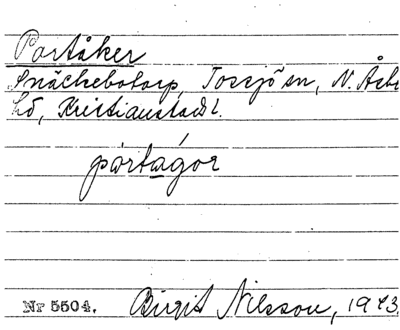 Portåker
Snäckebotorp, Tossjö sn, N. Åsbo
hd, Kristianstads l.
pòrtagor
Nr 5504. Birgit Nilsson, 1943.